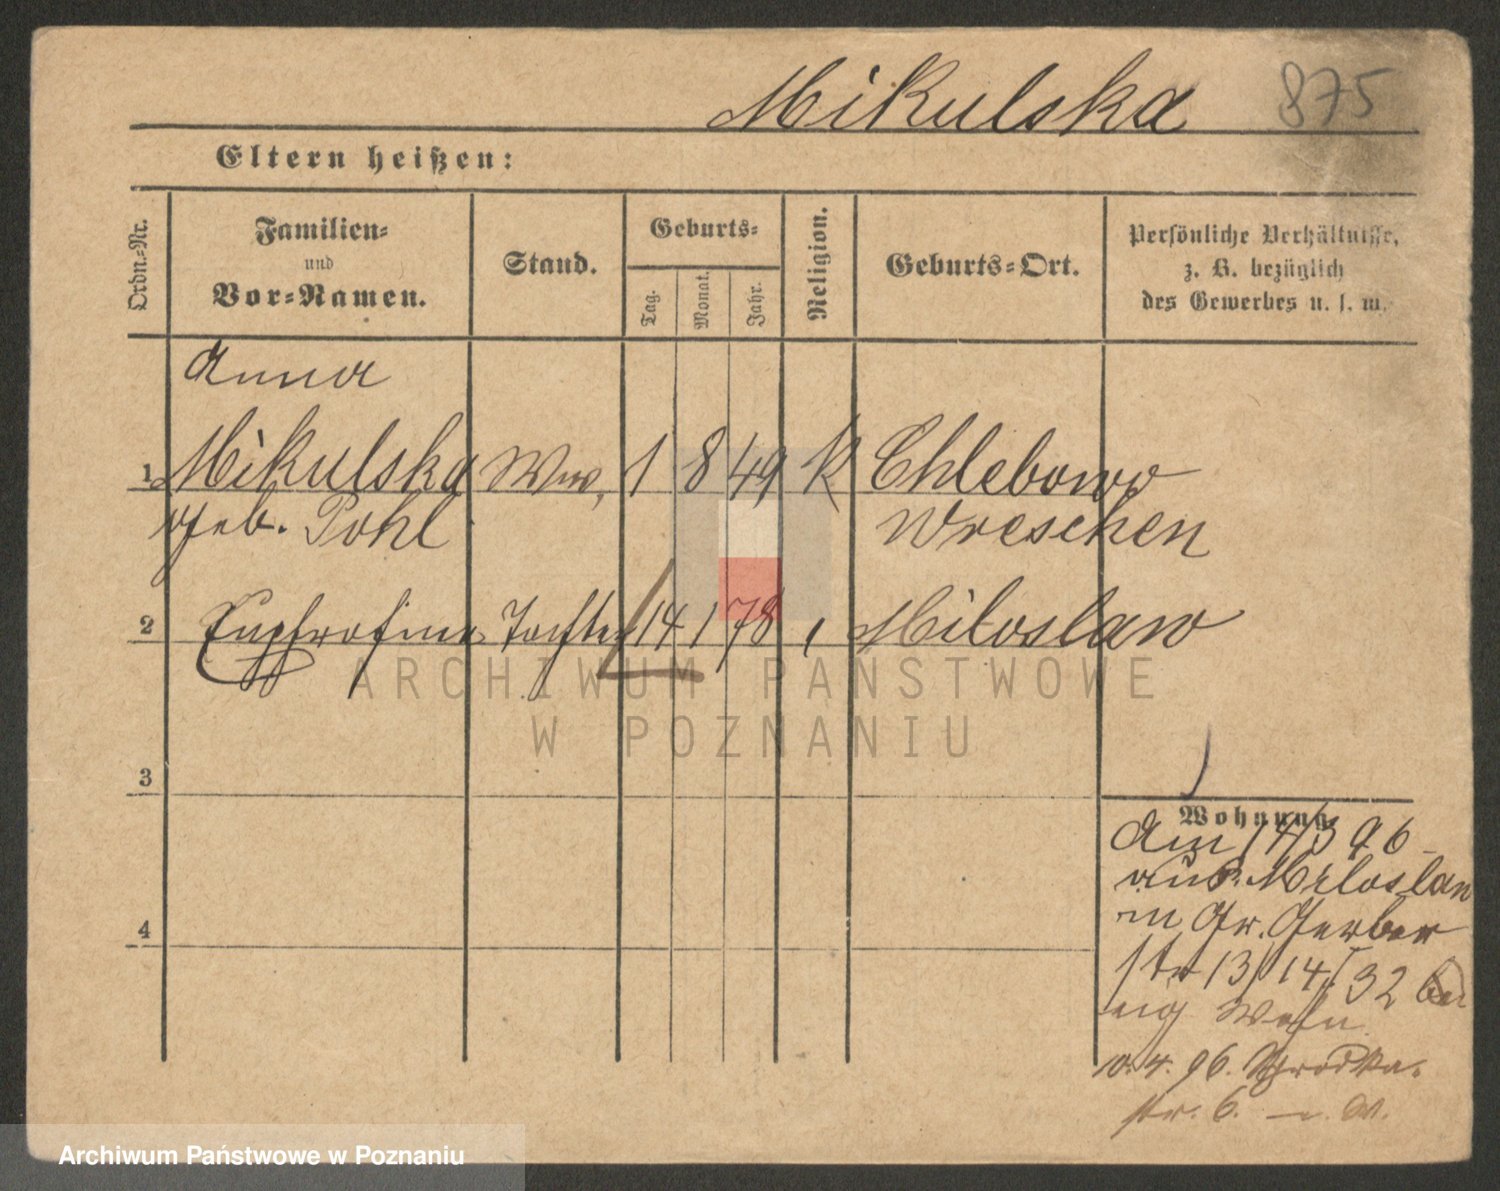 Mikulska 875
Eltern heißen:
Ordn.-Nr.
Familien-
und
Vor-Namen.
Stand.
Geburts-
Tag.
Monat.
Jahr.
Religion.
Geburts-Ort.
Persönliche Verhältnisse,
z. B. bezüglich
des Gewerbes u. s. w.
Anna
1 Mikulska Ww. 1 8 49 K Chlebowo
geb. Pohl Wreschen
2 Euphrosine Tochter 14 1 78 Miloslaw
3
Wohnung
Am 14/3 96
aus Miloslaw
in Gr. Gerber
str 13/14 I 32 bei
eig Wohn
10.4.96. Schrodka-
str. 6. W.
4
ARCHIWUM PAŃSTWOWE
W POZNANIU
Archiwum Państwowe w Poznaniu